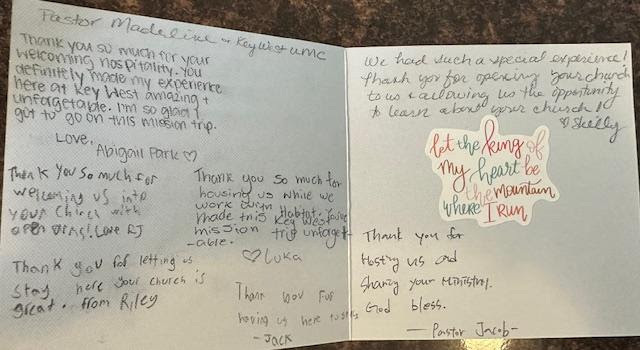 Pastor Madeline & Key West UMC
Thank you so much for your
welcoming hospitality. You
definitely made my experience
here at Key West amazing +
unforgetable. I'm so glad I
got to go on this mission trip.
Love,
Abigail Park ♡
Thank you so much for
welcoming us into
your church with
open arms! Love RJ
Thank you so much for
housing us while we
work with Habitat. You've
made this Key West
mission trip unforget-
-able.
♡ Luka
Thank you for letting us
stay here your church is
great. from Riley
Thank you for
having us here to
- Jack
We had such a special experience!
Thank you for opening your church
to us & allowing us the opportunity
to learn about your church!
♡ Shelly
let the king of
my heart be
the mountain
where I run
Thank you for
Hosting us and
Sharing your Ministry.
God bless.
- Pastor Jacob -